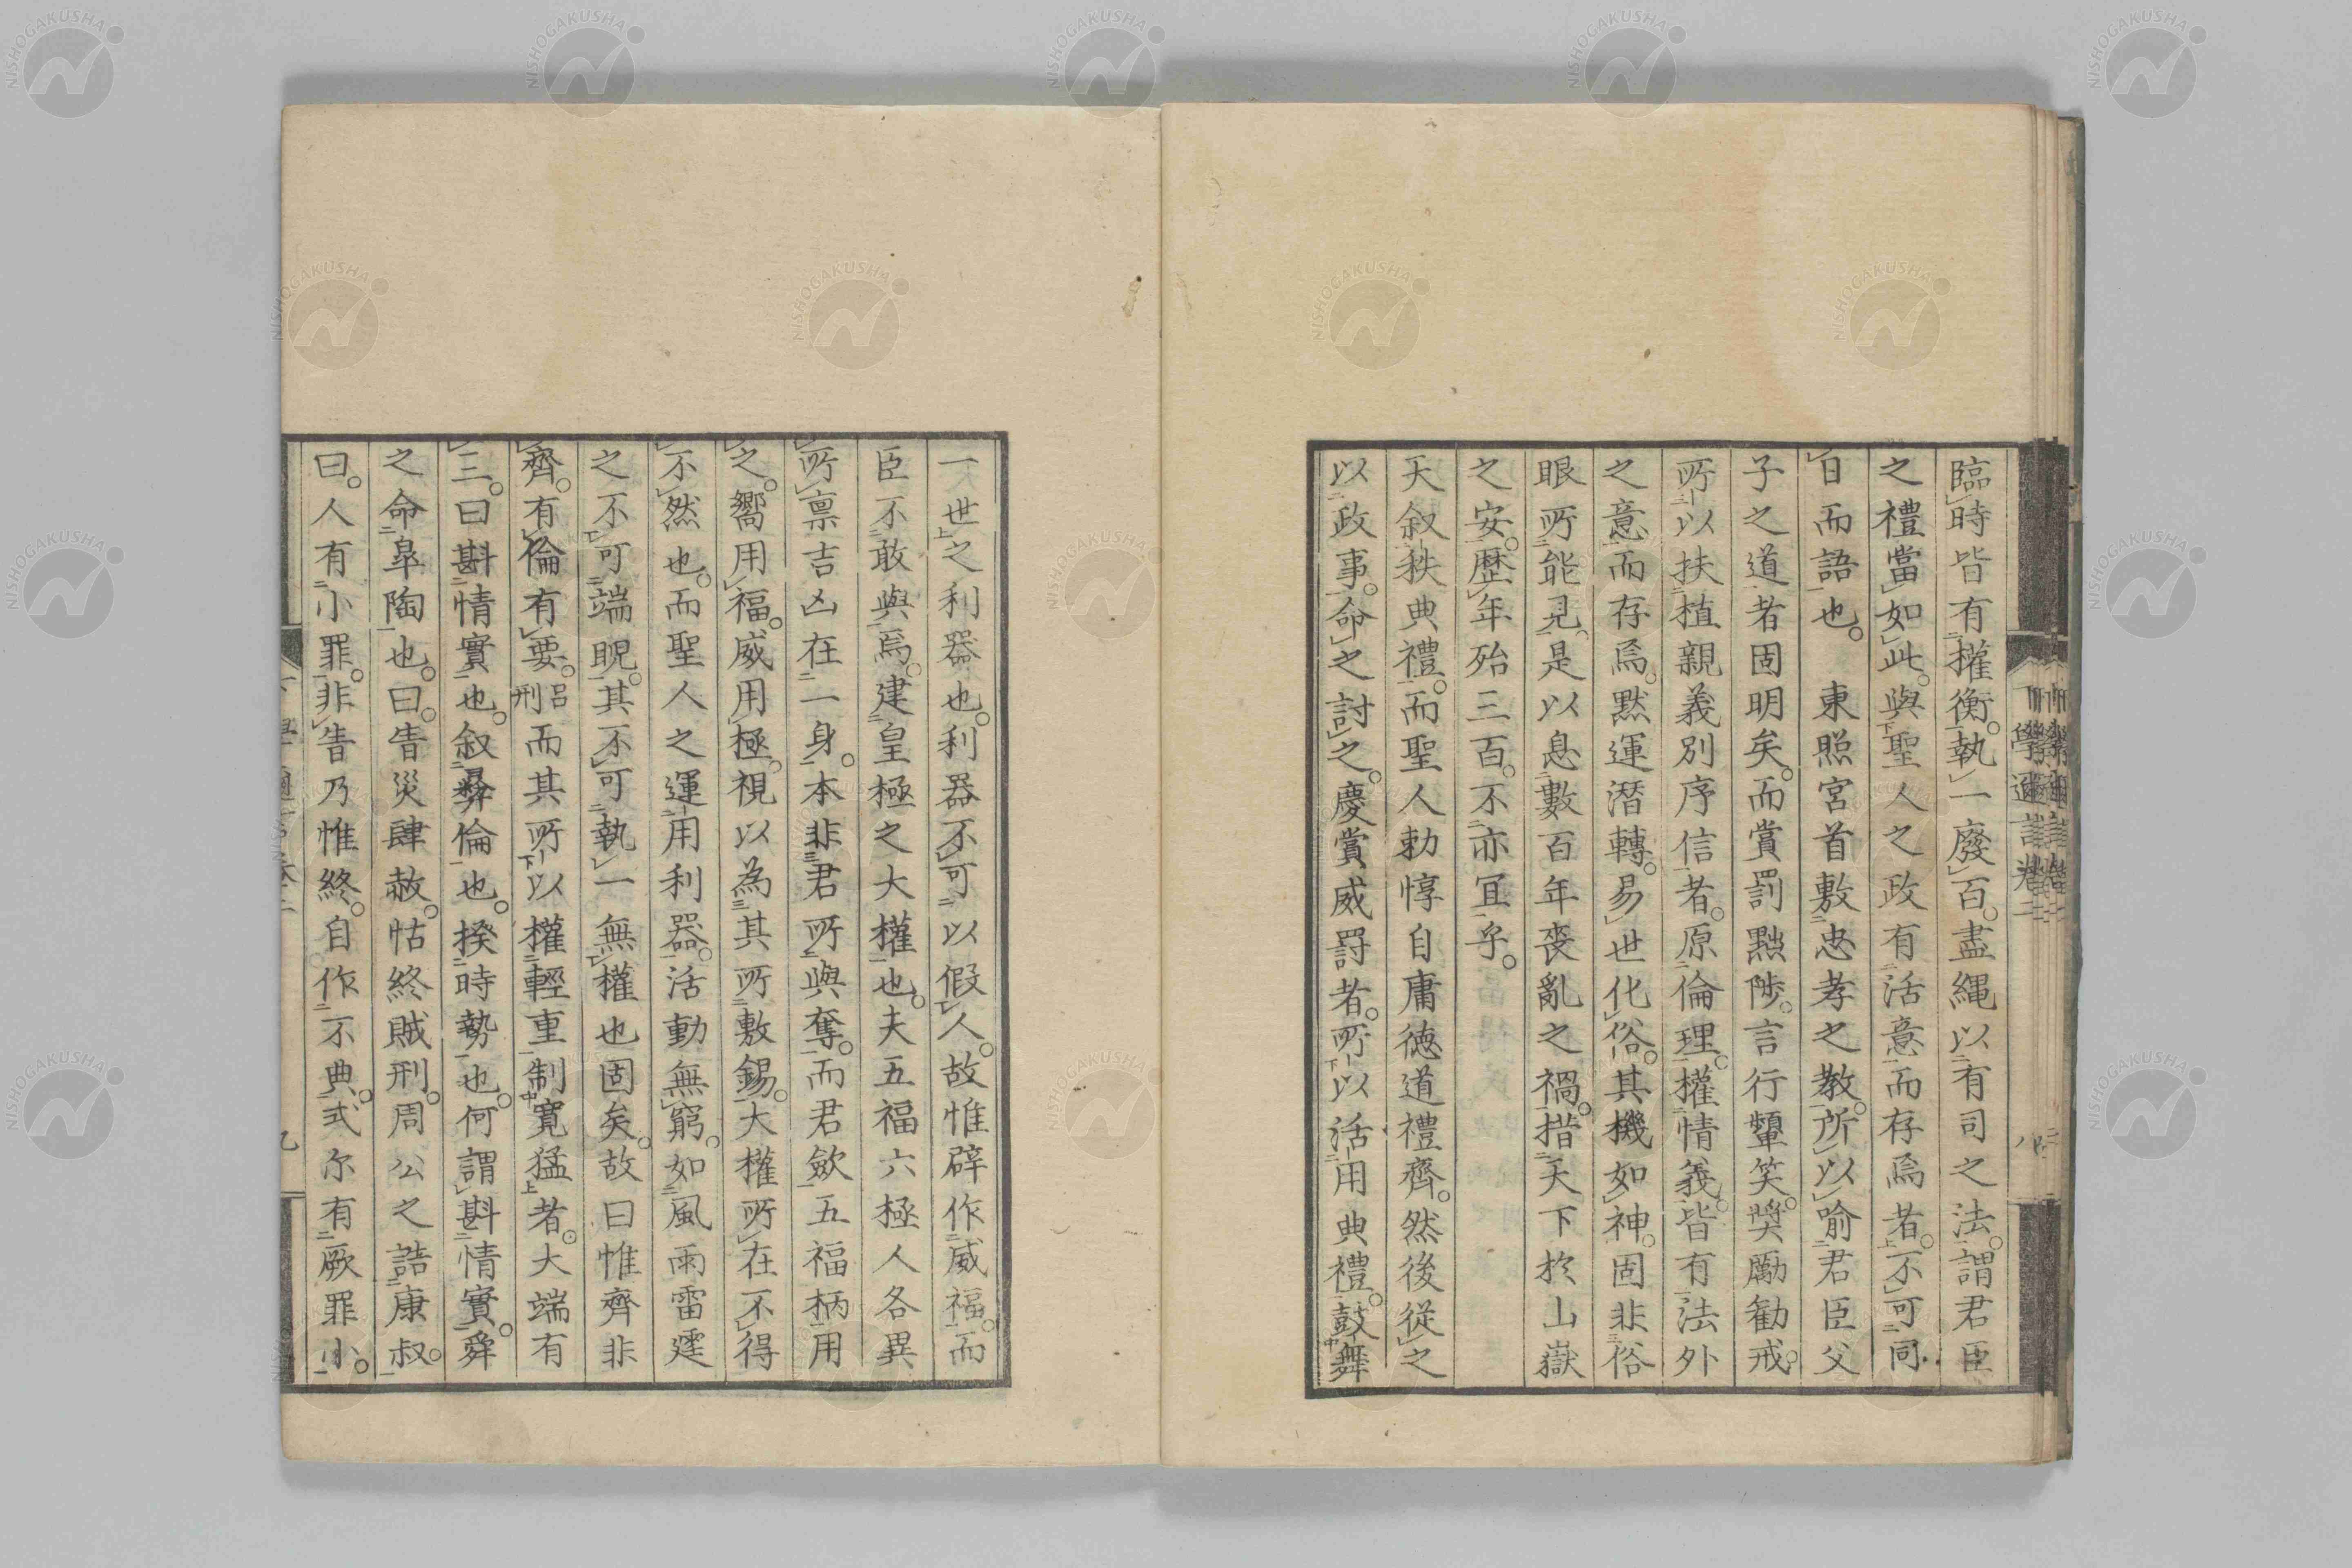 臨時皆有權衡。執一廢百。盡繩以有司之法。謂君臣
之禮當如此。與聖人之政有活意而存焉者。不可同
日而語也。　東照宮首敷忠孝之教。所以喻君臣父
子之道者固明矣。而賞罰黜陟。言行顰笑。奬勵勧戒。
所以扶植親義別序信者。原倫理。權情義。皆有法外
之意而存焉。默運潛轉。易世化俗。其機如神。固非俗
眼所能見。是以息數百年喪亂之禍。措天下於山嶽
之安。歷年殆三百。不亦宜乎。
天叙秩典禮。而聖人勅惇自庸德道禮齊。然後從之
以政事。命之討之。慶賞威罸者。所以活用典禮。鼓舞
一世之利器也。利器不可以假人。故惟辟作威福。而
臣不敢與焉。建皇極之大權也。夫五福六極人各異
所稟吉凶在一身。本非君所與奪。而君斂五福柄用
之。嚮用福。威用極。視以為其所敷錫。大權所在不得
不然也。而聖人之運用利器。活動無窮。如風雨雷霆
之不可端睨。其不可執一無權也固矣。故曰惟齊非
齊。有倫有要。呂刑而其所以權輕重制寬猛者。大端有
三。曰斟情實也。叙彝倫也。揆時勢也。何謂斟情實。舜
之命皐陶也。曰眚災肆赦。怙終賊刑。周公之誥康叔。
曰。人有小罪。非眚乃惟終。自作不典。式尓有厥罪小。
NISHOGAKUSHA